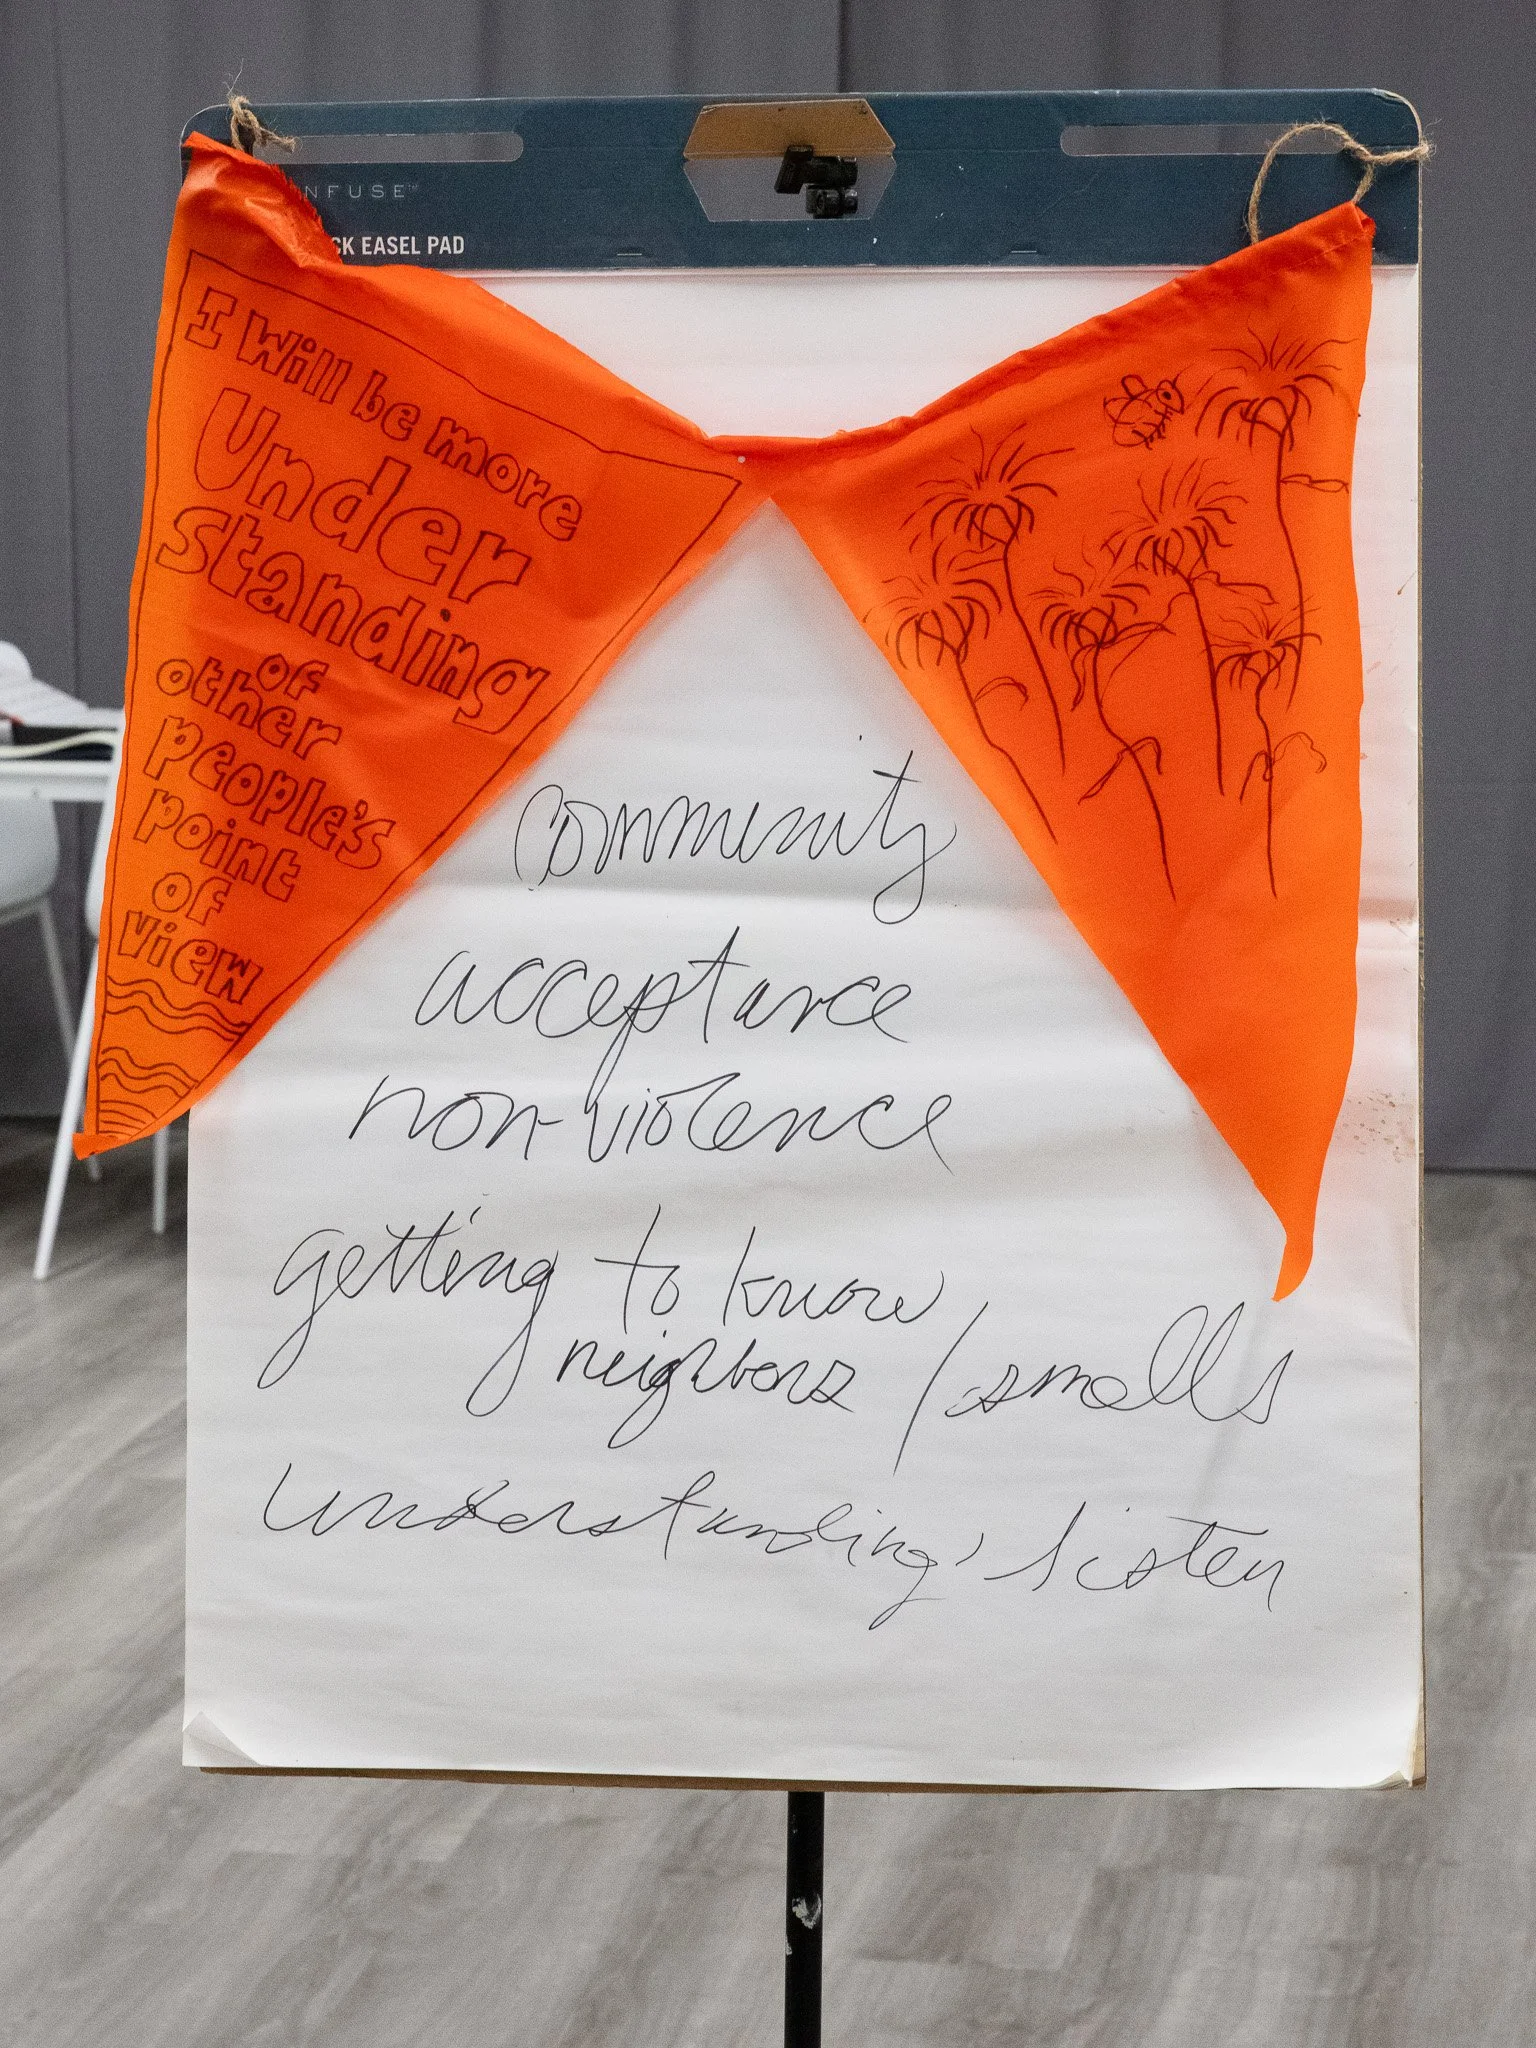 NFUSE™
CK EASEL PAD
I will be more
Under
standing
of
other
people's
point
of
view
community
acceptance
non-violence
getting to know
neighbors / smells
understanding, listen